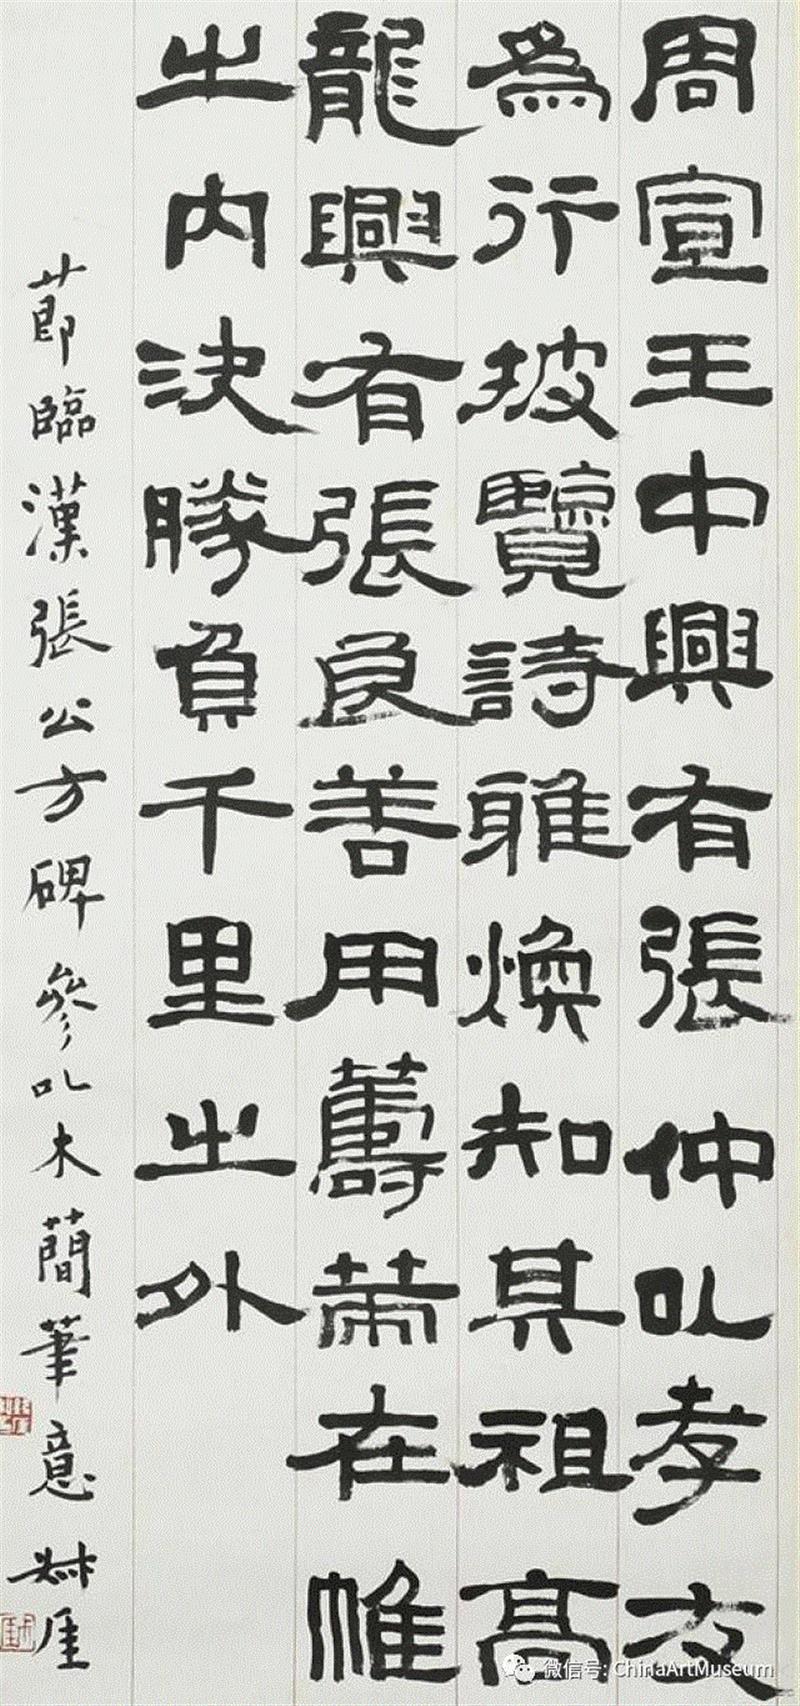 周宣王中興有張仲以孝友
為行披覽詩雅煥知其祖高
龍興有張良善用籌策在帷
之內決勝負千里之外
節臨漢張公方碑參以木簡筆意
微信号: ChinaArtMuseum